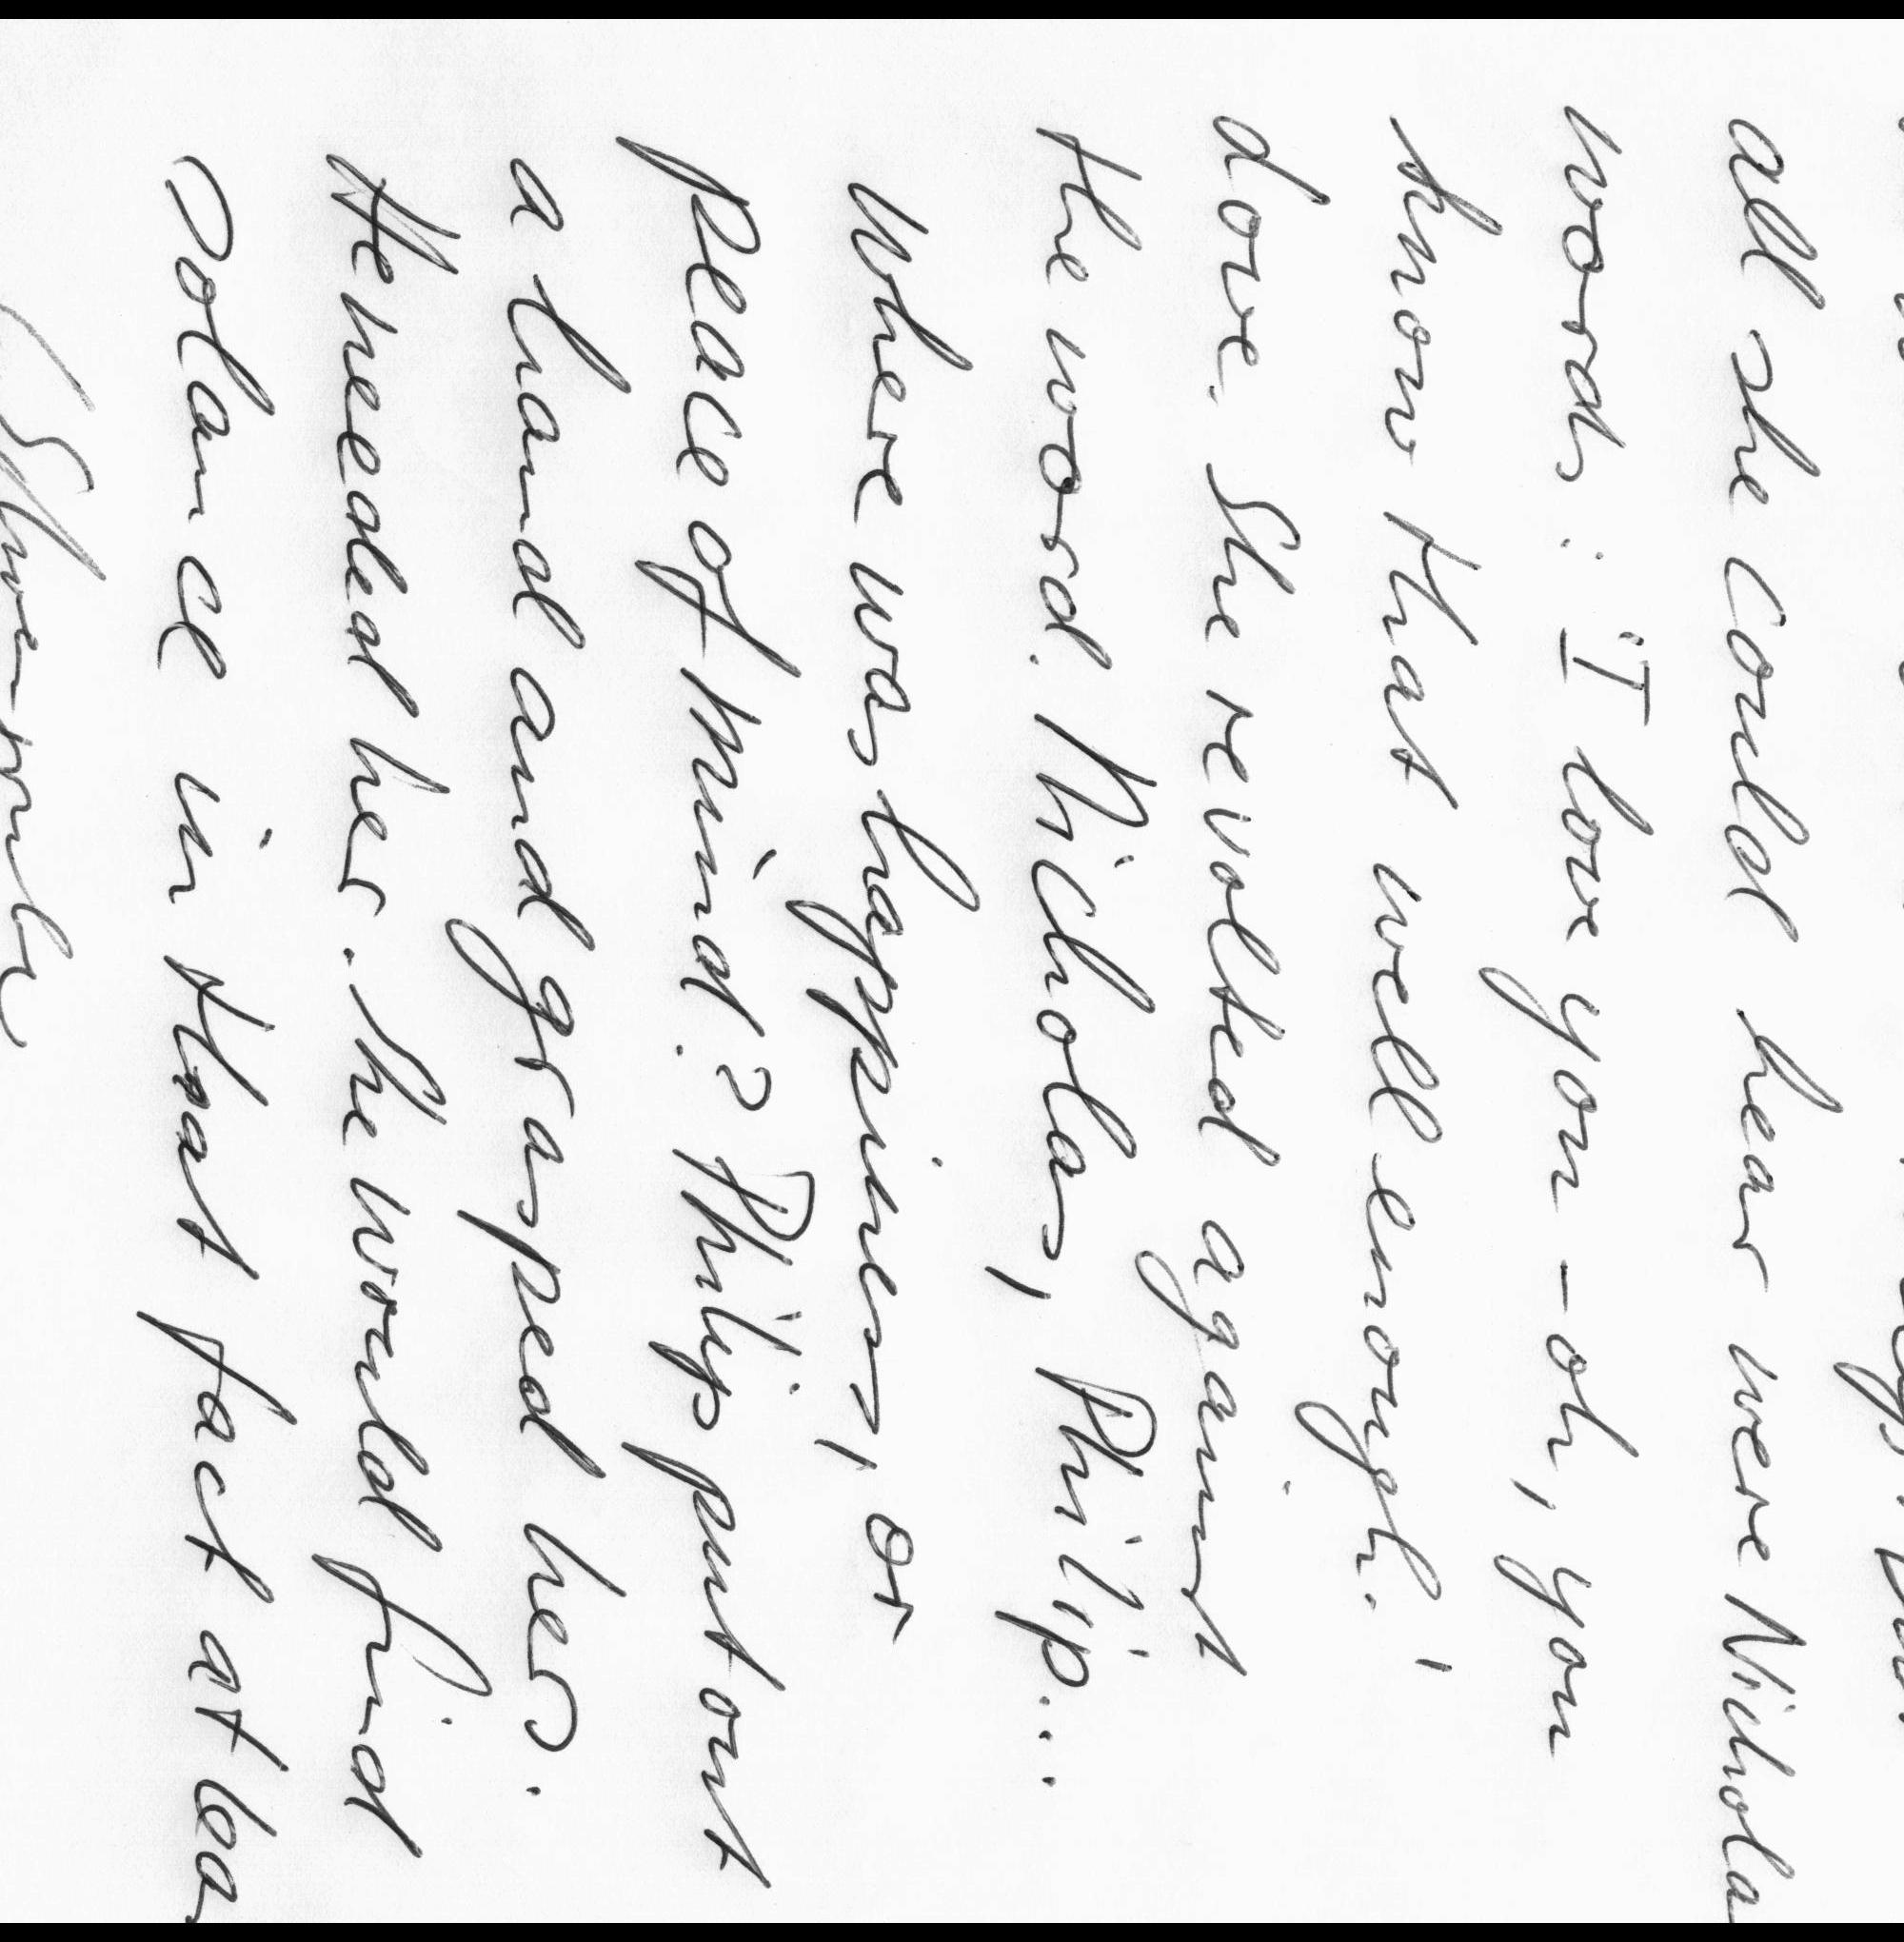 all she could hear were Nichola
words : "I love you - oh, you
know that well enough.'
love. She revolted against
the word. Nicholas, Philip...
Where was happiness, or
peace of mind? Philip put out
a hand and grasped her.
He needed her. She would find
solance in that fact at lea